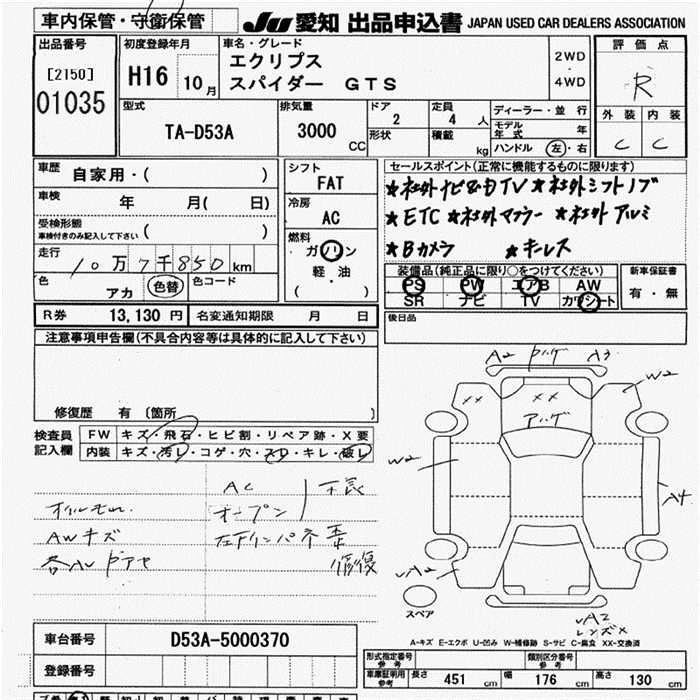 車内保管・守衛保管 JU 愛知 出品申込書 JAPAN USED CAR DEALERS ASSOCIATION
出品番号 [2150] 01035
初度登録年月 H16 10月
車名・グレード エクリプス
スパイダー GTS
2WD ・ 4WD
評価点 R
外装 内装
C C
型式 TA-D53A
排気量 3000 CC
ドア 2
形状
定員 4 人
積載 kg
ディーラー・並行
モデル年式 年
ハンドル 左・右
車歴 自家用・( )
車検 年 月( 日)
受検形態 車検付きのみ記入して下さい ( )
走行 10万7千850km
色 アカ 色替 色コード
シフト FAT
冷房 AC
燃料 ガソリン
軽・油
( )
セールスポイント(正常に機能するものに限ります)
★社外ナビ TV ★社外シフトノブ
★ETC ★社外マフラー ★社外アルミ
★Bカメラ ★キーレス
装備品(純正品に限り○をつけてください)
PS PW エアB AW
SR ナビ TV カワシート
新車保証書
有・無
R券 13,130 円 名変通知期限 月 日
後日品
注意事項申告欄(不具合内容等は具体的に記入して下さい)
修復歴 有 〔箇所 〕
検査員記入欄
FW キズ・飛石・ヒビ割・リペア跡・X要
内装 キズ・汚レ・コゲ・穴・スレ・キレ・破レ
AC 不良
オイルモレ オープン
AWキズ 左下インパネ
修復
A2 A3
W2
XX XX
W2
A4
A2
A2
スペア
A-キズ E-エクボ U-凹み W-補修跡 S-サビ C-腐食 XX-交換済
車台番号 D53A-5000370
登録番号
形式指定番号 参考 類別区分番号 参考
車庫証明用 参考 長さ 451 cm 幅 176 cm 高さ 130 cm